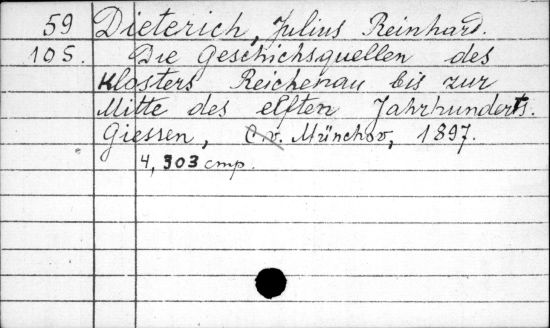 59 Dieterich, Julius Reinhard.
105. Die Geschichsquellen des
Klosters Reichenau bis zur
Mitte des elften Jahrhunderts.
Giessen, C. v. Münchov, 1897.
4, 303 cmp.